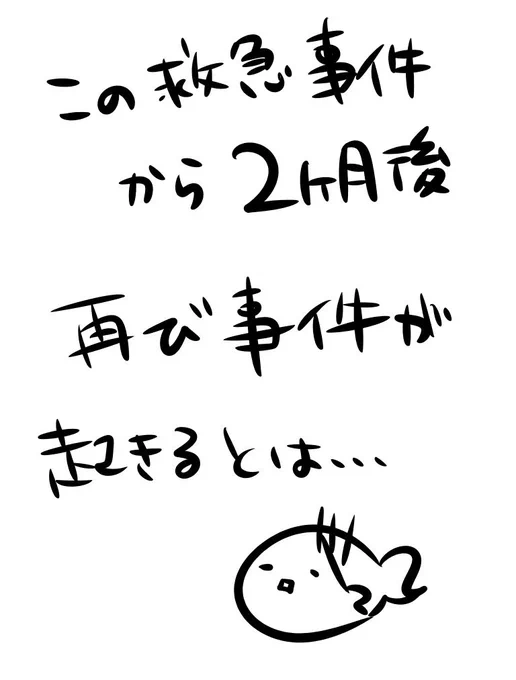 この救急事件
から2ヶ月後
再び事件が
起きるとは...